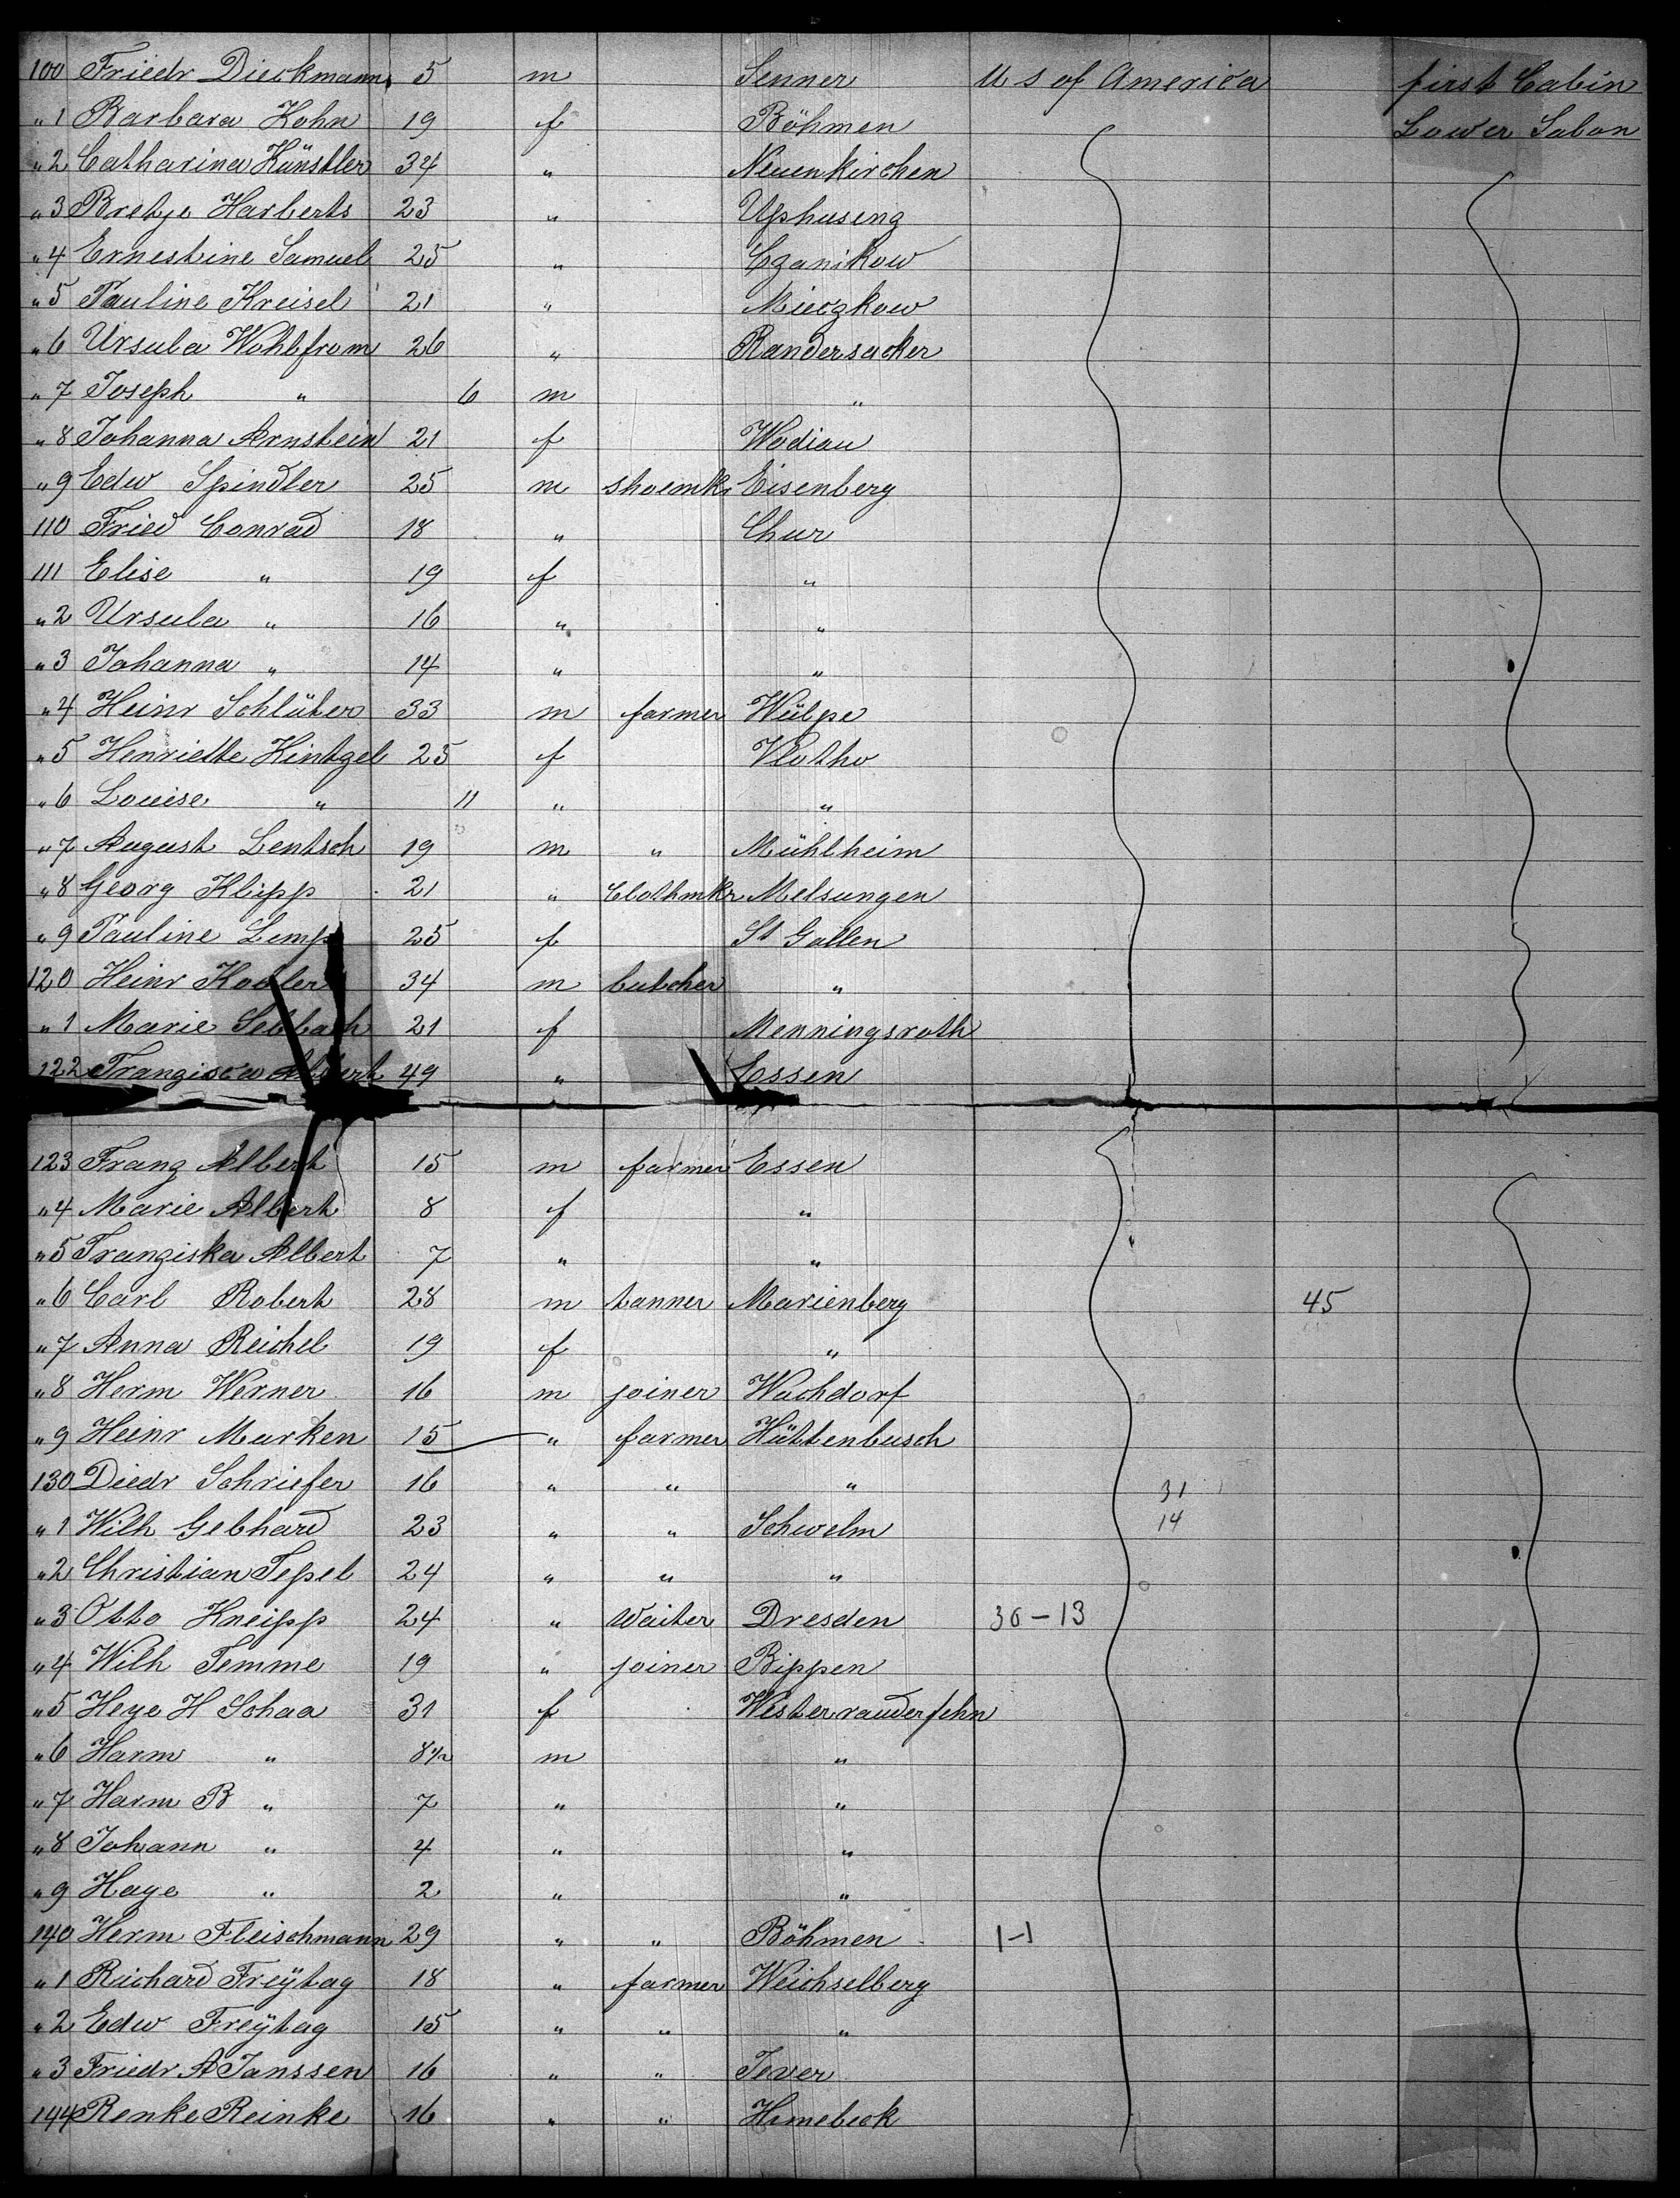 100 Friedr Dieckmann 5 m Senner U S of America first Cabin
" 1 Barbara Kohn 19 f Böhmen Lower Salon
" 2 Catharina Künstler 34 " Neuenkirchen
" 3 Bretje Harberts 23 " Uphuseng
" 4 Ernestine Samuel 25 " Czanikow
" 5 Pauline Kreisel 21 " Mieczkow
" 6 Ursula Wohlfrom 26 " Randersacker
" 7 Joseph " 6 m "
" 8 Johanna Arnstein 21 f Wodiau
" 9 Edw Spindler 25 m shoemkr Eisenberg
110 Fried Conrad 18 " Chur
111 Elise " 19 f "
" 2 Ursula " 16 " "
" 3 Johanna " 14 " "
" 4 Heinr Schlüter 33 m farmer Wülpe
" 5 Henriette Hintzel 25 f Vlotho
" 6 Louise " 11 " "
" 7 August Lentsch 19 m " Mühlheim
" 8 Georg Klipp 21 " Clothmkr Melsungen
" 9 Pauline Lemp 25 f St Gallen
120 Heinr 34 m butcher "
" 1 Marie Sellbach 21 f Menningsroth
122 Franzisca Albert 49 " Essen
123 Franz Albert 15 m farmer Essen
" 4 Marie Albert 8 f "
" 5 Franziska Albert 7 " "
" 6 Carl Robert 28 m tanner Marienberg 45
" 7 Anna Reichel 19 f "
" 8 Herm Werner 16 m joiner Wachdorf
" 9 Heinr Marken 15 " farmer Hüttenbusch
130 Diedr Schriefer 16 " " " 31
" 1 Wilh Gebhard 23 " " Schwelm 14
" 2 Christian Tepel 24 " " "
" 3 Otto Kneipp 24 " Waiter Dresden 30-13
" 4 Wilh Temme 19 " joiner Bippen
" 5 Heye H Schaa 31 f Westerrauderfehn
" 6 Harm " 8½ m "
" 7 Harm B " 7 " "
" 8 Johann " 4 " "
" 9 Haye " 2 " "
140 Herm Fleischmann 29 " " Böhmen 1-1
" 1 Richard Freÿtag 18 " farmer Weichselberg
" 2 Edw Freÿtag 15 " " "
" 3 Friedr A Janssen 16 " " Jever
144 Renke Reinke 16 " " Himebeck